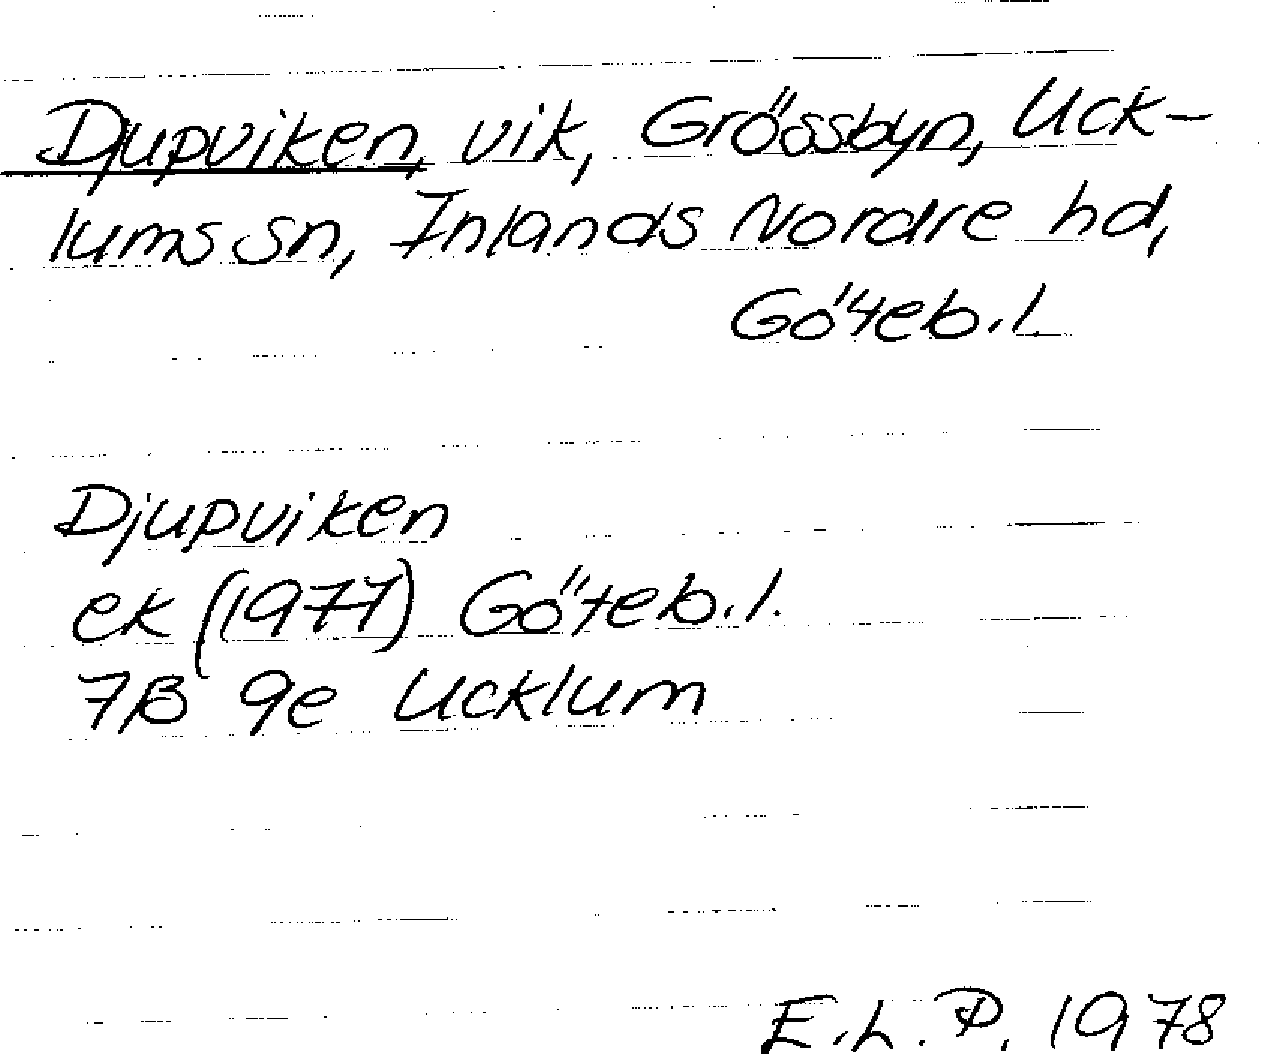 Djupviken, vik, Grössbyn, Uck-
lums sn, Inlands Nordre hd,
Göteb. l.
Djupviken
ek (1977) Göteb. l.
7B 9e Ucklum
E.L.P. 1978